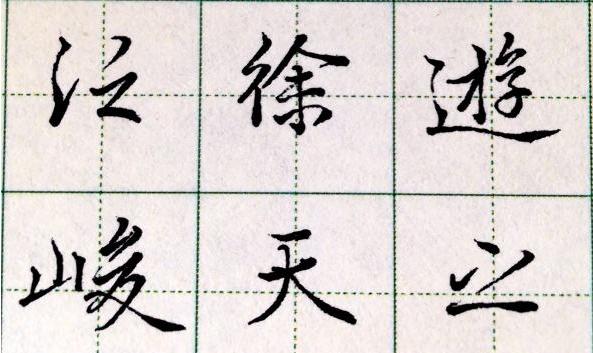 江徐遊
峻天之